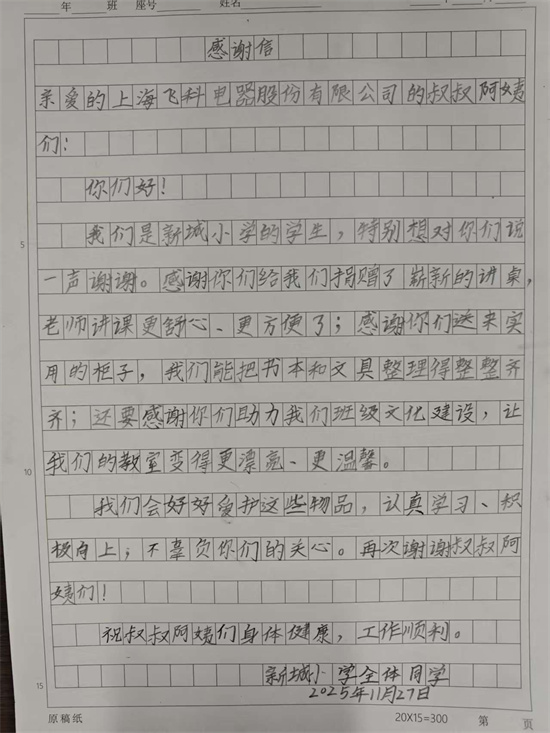 年 班 座号 姓名
感谢信
亲爱的上海飞科电器股份有限公司的叔叔阿姨
们：
你们好！
我们是新城小学的学生，特别想对你们说
一声谢谢。感谢你们给我们捐赠了崭新的讲桌，
老师讲课更舒心、更方便了；感谢你们送来实
用的柜子，我们能把书本和文具整理得整整齐
齐；还要感谢你们助力我们班级文化建设，让
我们的教室变得更漂亮、更温馨。
我们会好好爱护这些物品，认真学习、积
极向上；不辜负你们的关心。再次谢谢叔叔阿
姨们！
祝叔叔阿姨们身体健康，工作顺利。
新城小学全体同学
2025年11月27日
5
10
15
原稿纸 20X15=300 第 页